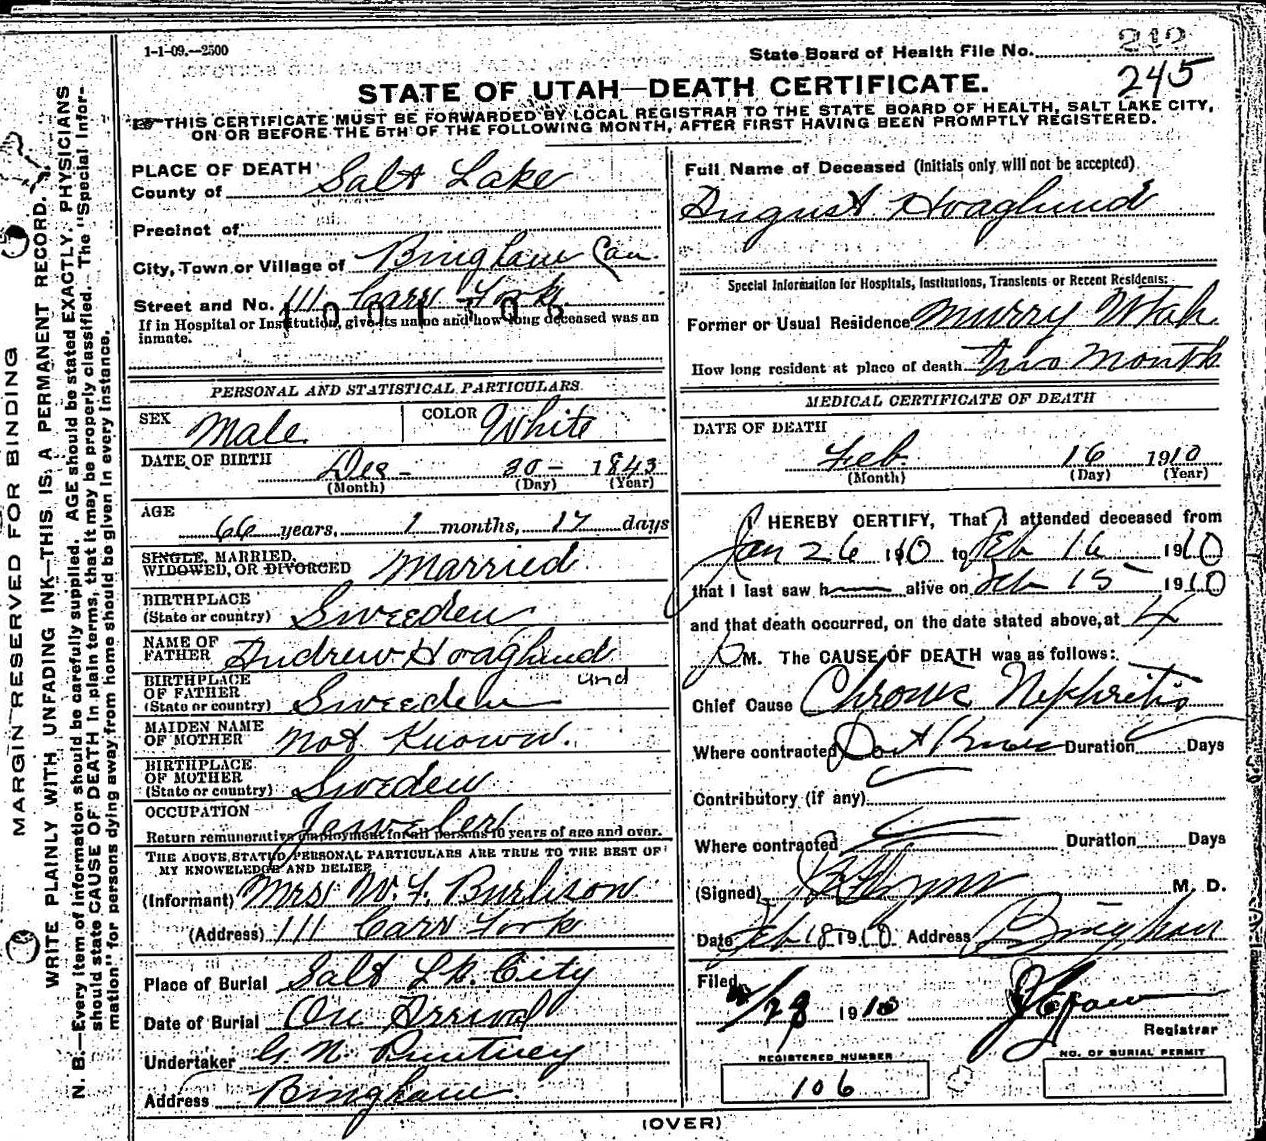 1-1-09.—2500
State Board of Health File No. 212
245
STATE OF UTAH—DEATH CERTIFICATE.
THIS CERTIFICATE MUST BE FORWARDED BY LOCAL REGISTRAR TO THE STATE BOARD OF HEALTH, SALT LAKE CITY,
ON OR BEFORE THE 5TH OF THE FOLLOWING MONTH, AFTER FIRST HAVING BEEN PROMPTLY REGISTERED.
MARGIN RESERVED FOR BINDING
WRITE PLAINLY WITH UNFADING INK—THIS IS A PERMANENT RECORD.
N. B.—Every item of information should be carefully supplied. AGE should be stated EXACTLY. PHYSICIANS
should state CAUSE OF DEATH in plain terms, that it may be properly classified. The "Special Infor-
mation" for persons dying away from home should be given in every instance.
PLACE OF DEATH
County of Salt Lake
Precinct of
City, Town or Village of Bingham Can.
Street and No. 111 Carr Fork
1001706
If in Hospital or Institution, give its name and how long deceased was an
inmate.
PERSONAL AND STATISTICAL PARTICULARS
SEX Male COLOR White
DATE OF BIRTH Dec - 30 - 1843
(Month) (Day) (Year)
AGE
66 years, 1 months, 17 days
SINGLE, MARRIED,
WIDOWED, OR DIVORCED Married
BIRTHPLACE
(State or country) Sweeden
NAME OF
FATHER Andrew Hoaglund
BIRTHPLACE
OF FATHER
(State or country) Sweeden
und
MAIDEN NAME
OF MOTHER Not Known.
BIRTHPLACE
OF MOTHER
(State or country) Sweden
OCCUPATION Jeweler
Return remunerative employment for all persons 10 years of age and over.
THE ABOVE STATED PERSONAL PARTICULARS ARE TRUE TO THE BEST OF
MY KNOWLEDGE AND BELIEF
(Informant) Mrs W. F. Burlison
(Address) 111 Carr Fork
Place of Burial Salt Lk. City
Date of Burial On Arrival
Undertaker G. N.
Address Bingham.
Full Name of Deceased (initials only will not be accepted)
August Hoaglund
Special Information for Hospitals, Institutions, Transients or Recent Residents:
Former or Usual Residence Murry Utah.
How long resident at place of death two Month
MEDICAL CERTIFICATE OF DEATH
DATE OF DEATH
Feb. 16 1910
(Month) (Day) (Year)
I HEREBY CERTIFY, That I attended deceased from
Jan 26 1910 to Feb 16 1910
that I last saw h alive on Feb 15 1910
and that death occurred, on the date stated above, at 4
P M. The CAUSE OF DEATH was as follows:
Chief Cause Chronic Nephritis
Where contracted Dont Know Duration Days
Contributory (if any)
Where contracted Duration Days
(Signed) M. D.
Date Feb 18 1910 Address Bingham
Filed
2/28 1910
Registrar
REGISTERED NUMBER
106
NO. OF BURIAL PERMIT
(OVER)